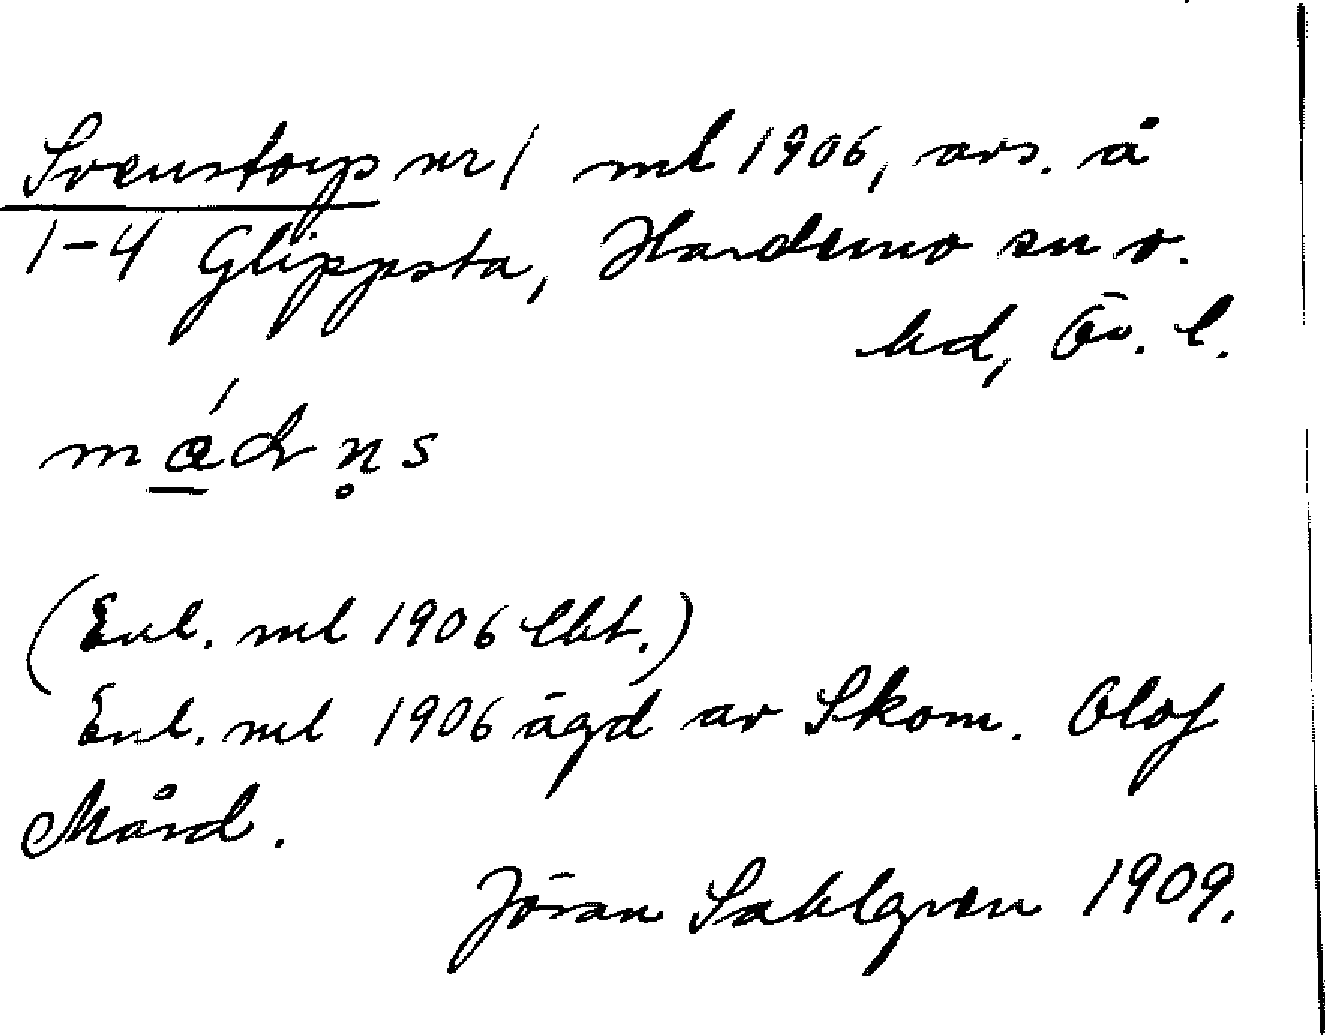 Svenstorp nr 1 ml 1906, avs. å
1-4 Glippsta, Hardemo sn o.
hd, Ör. l.
(Enl. ml 1906 lht.)
Enl. ml 1906 ägd av Skom. Olof
Mård.
Jöran Sahlgren 1909.